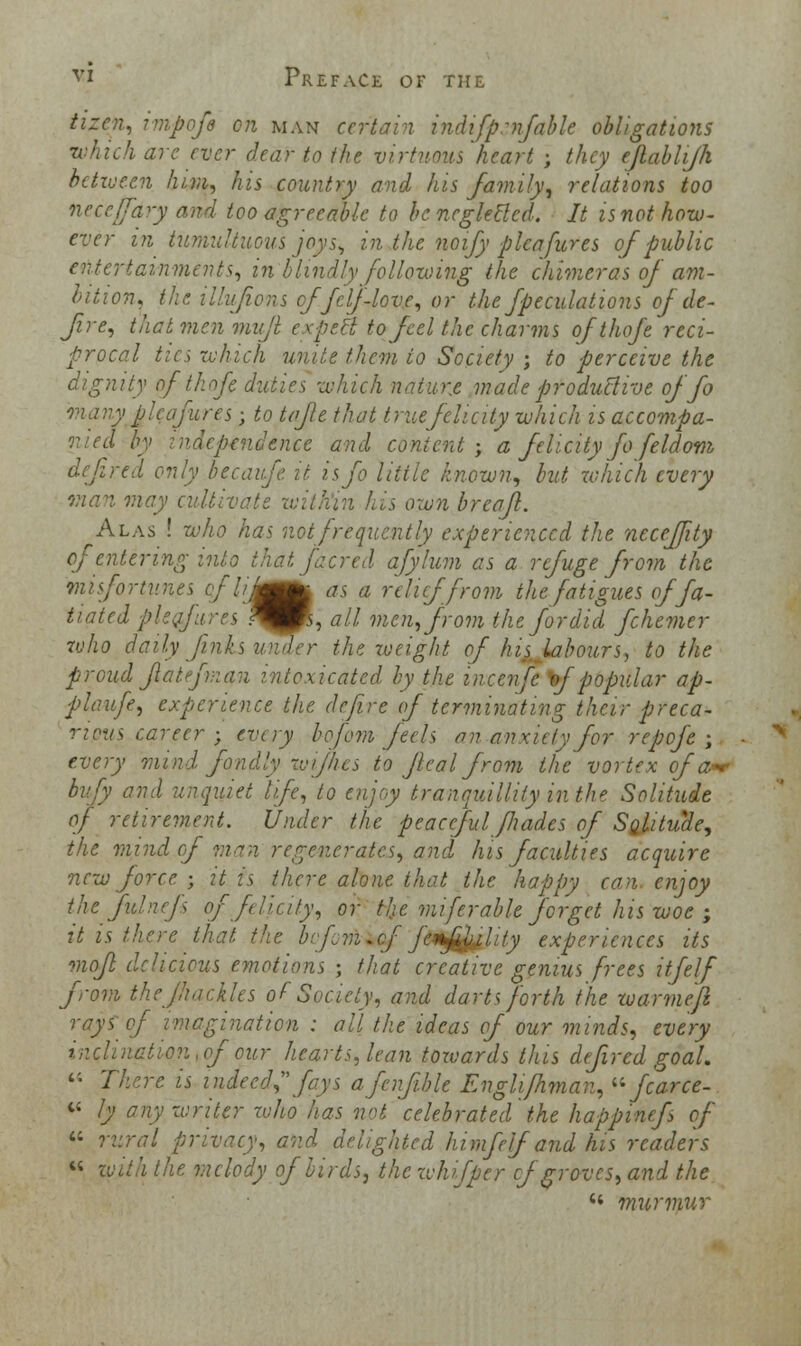 vi PREFACE OF THE
tizen, impoſe on MAN certain indiſpenſable obligations
which are ever dear to the virtuous heart ; they eſtabliſh
between him, his country and his family, relations too
neceſſary and too agreeable to be neglected. It is not how-
ever in tumultuous joys, in the noiſy pleaſures of public
entertainments, in blindly following the chimeras of am-
bition, the illuſions of ſelf-love, or the ſpeculations of de-
ſire, that men muſt expect to feel the charms of thoſe reci-
procal ties which unite them to Society ; to perceive the
dignity of thoſe duties which nature made productive of ſo
many pleaſures ; to taſte that true felicity which is accompa-
nied by independence and content ; a felicity ſo ſeldom
deſired only becauſe it is ſo little known, but which every
man may cultivate within his own breaſt.
ALAS ! who has not frequently experienced the neceſſity
of entering into that ſacred aſylum as a refuge from the
misfortunes of as a relief from the fatigues of ſa-
tiated pleaſures all men, from the ſordid ſchemer
who daily ſinks under the weight of his labours, to the
proud ſtateſman intoxicated by the incenſe of popular ap-
plauſe, experience the deſire of terminating their preca-
rious career ; every boſom feels an anxiety for repoſe ;
every mind fondly wiſhes to ſteal from the vortex of a
buſy and unquiet life, to enjoy tranquillity in the Solitude
of retirement. Under the peaceful ſhades of Solitude,
the mind of man regenerates, and his faculties acquire
new force ; it is there alone that the happy can enjoy
the fulneſs of felicity, or the miſerable forget his woe ;
it is there that the boſom of ſenſibility experiences its
moſt delicious emotions ; that creative genius frees itſelf
from the ſhackles of Society, and darts forth the warmeſt
rays of imagination : all the ideas of our minds, every
inclination of our hearts, lean towards this deſired goal.
“ There is indeed,” ſays a ſenſible Engliſhman, “ ſcarce-
“ ly any writer who has not celebrated the happineſs of
“ rural privacy, and delighted himſelf and his readers
“ with the melody of birds, the whiſper of groves, and the
“ murmur